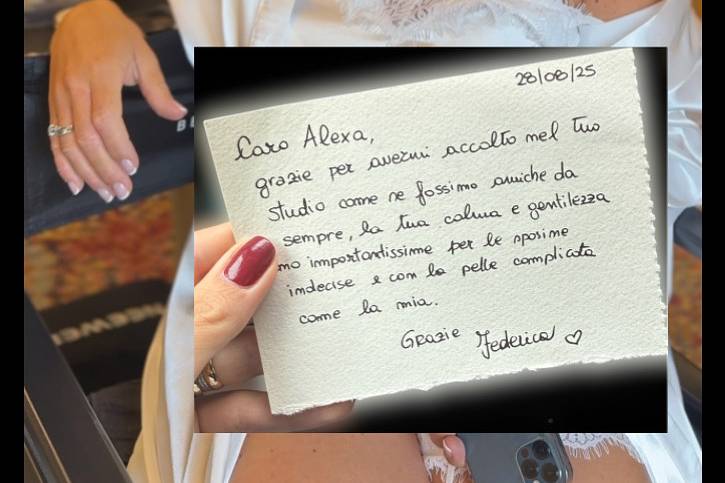 28/08/25
Caro Alexa,
grazie per avermi accolto nel tuo
studio come se fossimo amiche da
sempre, la tua calma e gentilezza
no importantissime per le sposine
indecise e con la pelle complicata
come la mia.
Grazie Federica ♡
NEEWER